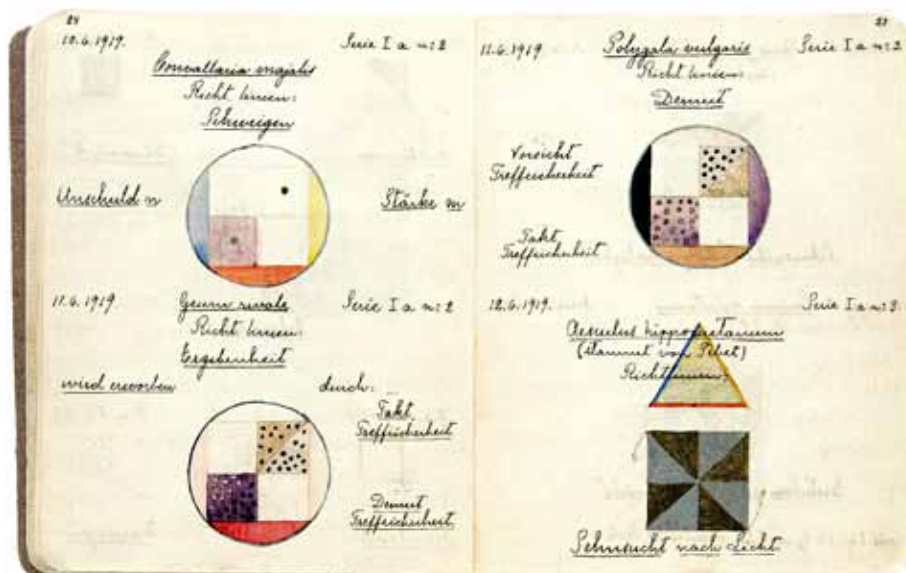 24
10.6.1919. Serie I a n:2
Convallaria majalis
Richtlinien:
Schweigen
Unschuld m Stärke m
11.6.1919 Geum rivale Serie I a n:2
Richtlinien:
Ergebenheit
wird erworben durch:
Takt,
Treffsicherheit
Demut
Treffsicherheit
11.6.1919 Polygala vulgaris Serie I a n:2
Richtlinien:
Demut
Vorsicht
Treffsicherheit
Takt,
Treffsicherheit
12.6.1919. Serie I a n:3.
Aesculus hippocastanum
(stammt von Tibet)
Richtlinien.
Sehnsucht nach Licht